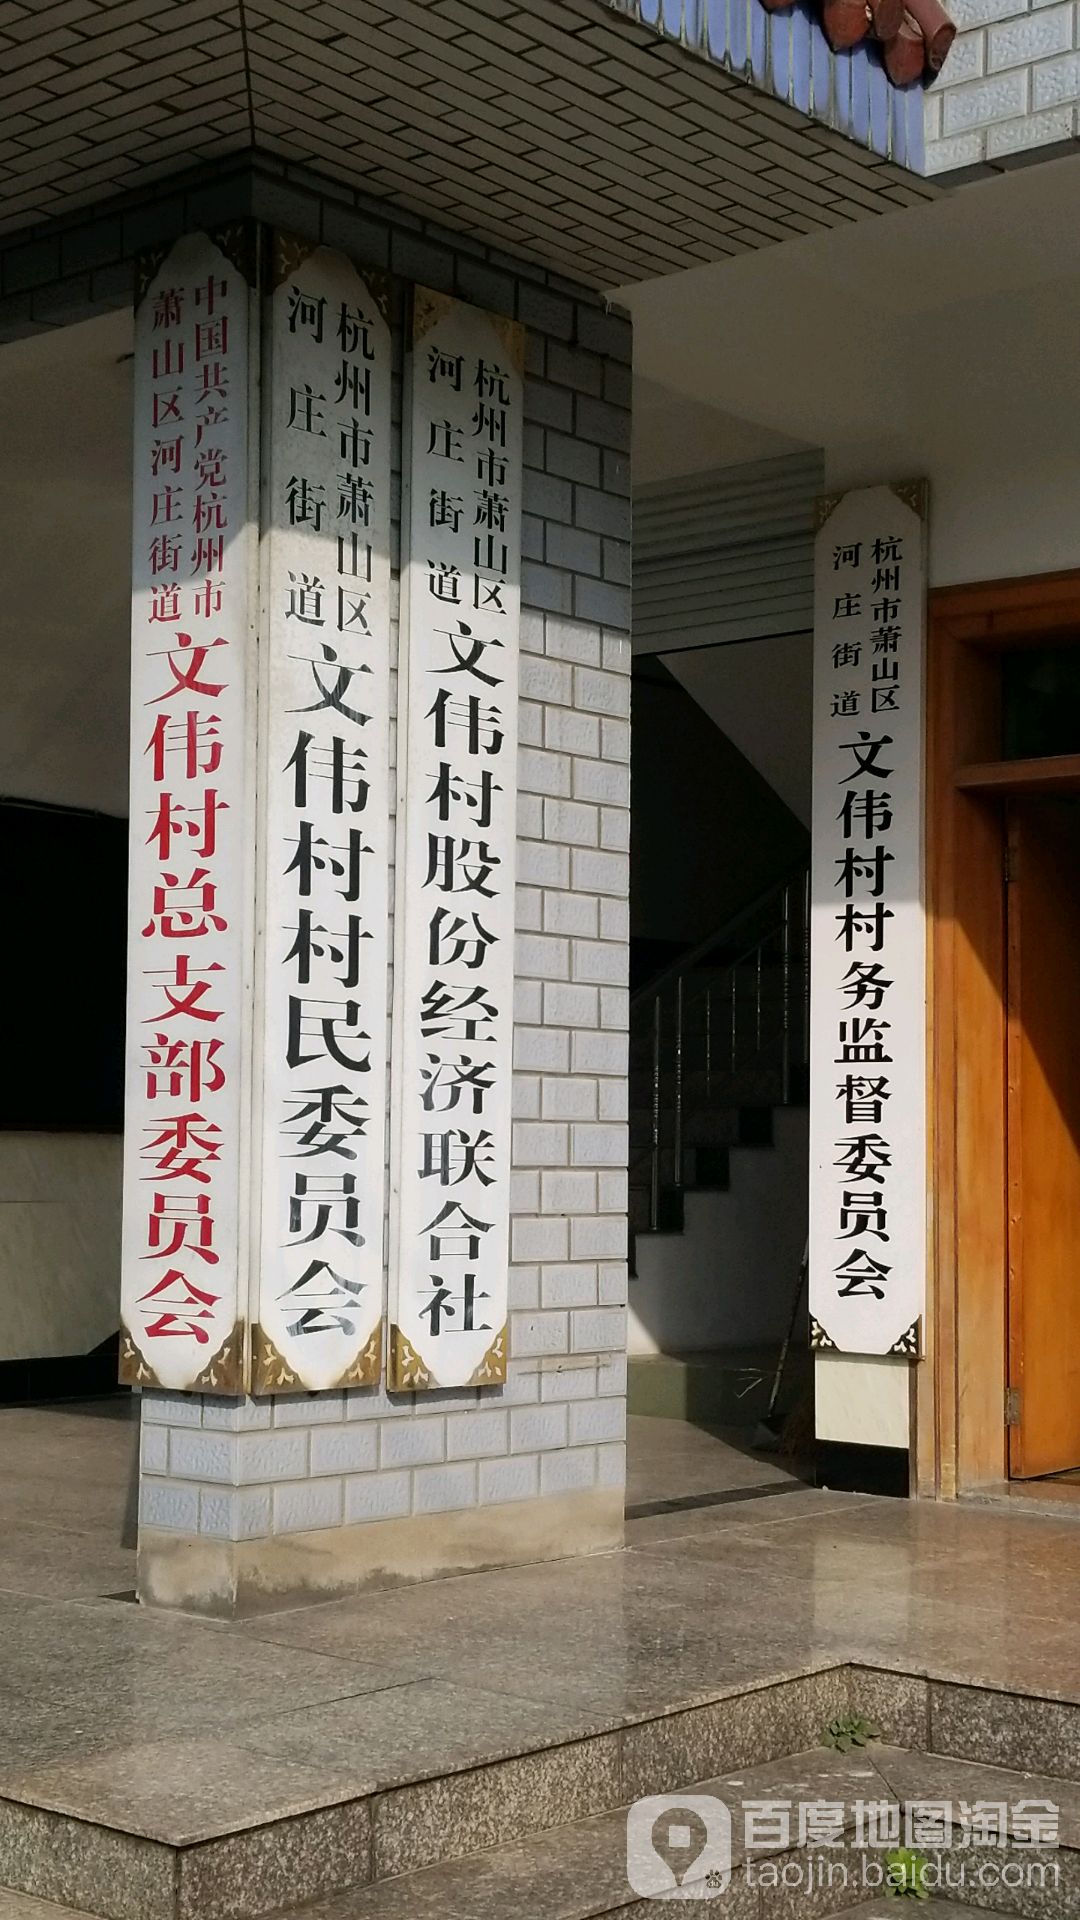 中国共产党杭州市
萧山区河庄街道
文伟村总支部委员会
杭州市萧山区
河庄街道
文伟村村民委员会
杭州市萧山区
河庄街道
文伟村股份经济联合社
杭州市萧山区
河庄街道
文伟村村务监督委员会
百度地图淘金
taojin.baidu.com